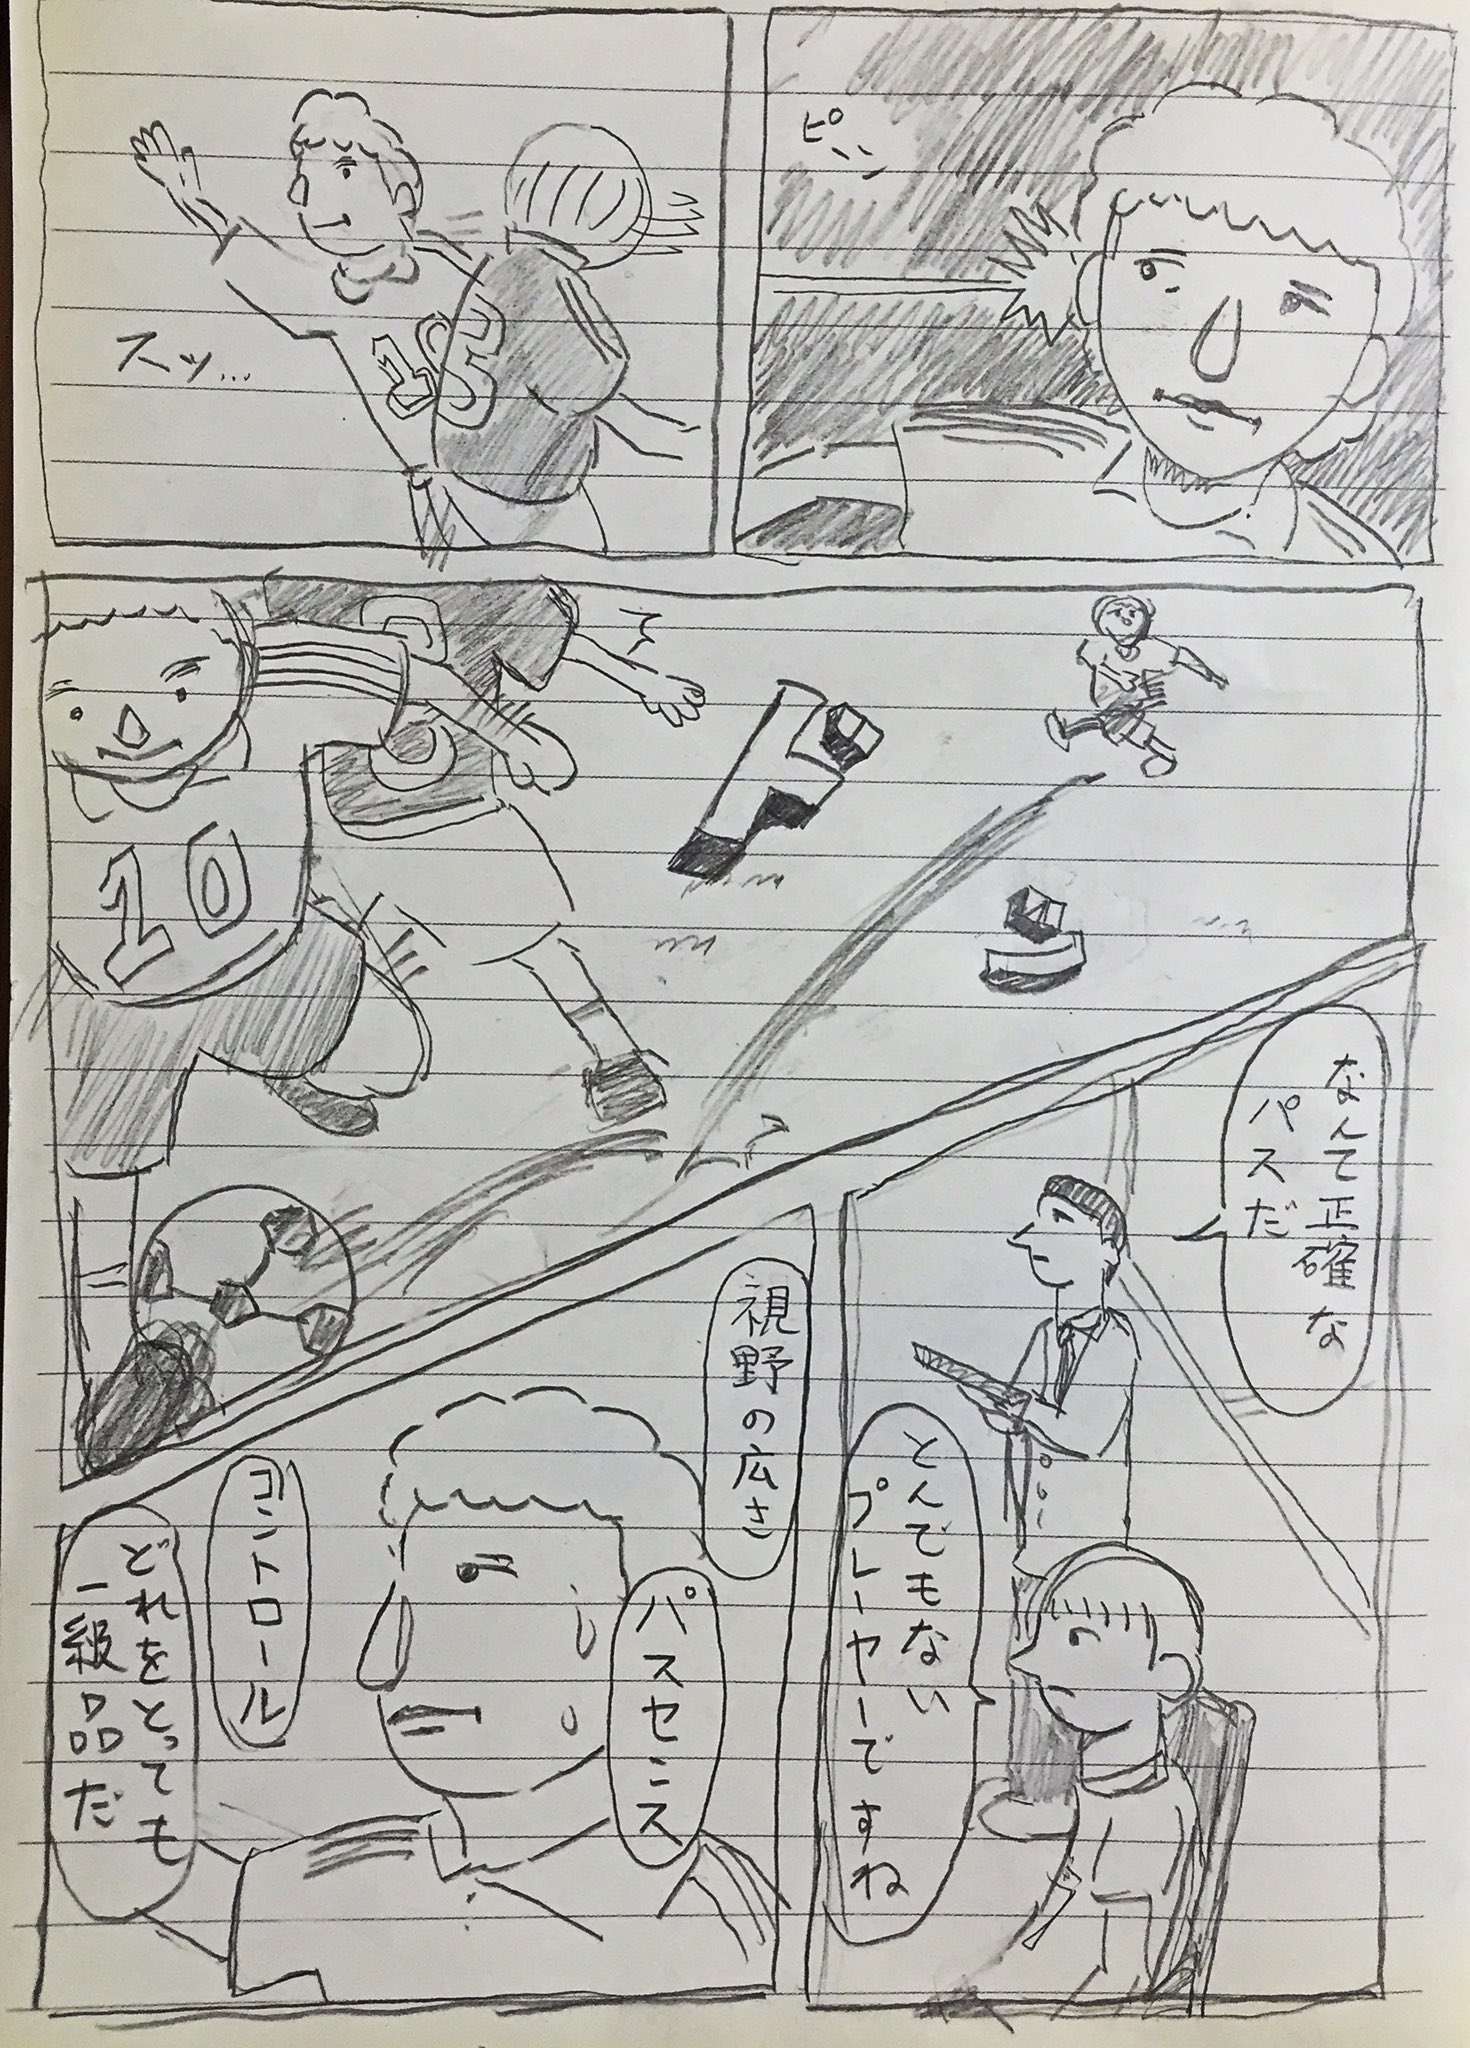 ピーン
スッ...
15
10
て
なんて正確な
パスだ
とんでもない
プレーヤーですね
視野の広さ
パスセンス
コントロール
どれをとっても
一級品だ